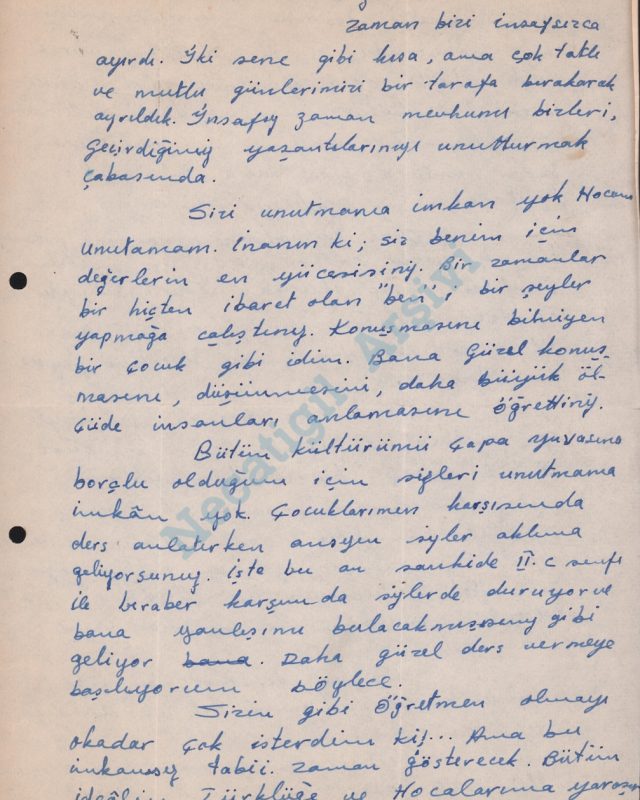 zaman bizi insafsızca
ayırdı. İki sene gibi kısa, ama çok tatlı
ve mutlu günlerimizi bir tarafa bırakarak
ayrıldık. İnsafsız zaman mevhumu bizleri,
geçirdiğimiz yaşantılarımızı unutturmak
çabasında.
Sizi unutmama imkan yok Hocam
unutamam. İnanın ki, siz benim için
değerlerin en yücesisiniz. Bir zamanlar
bir hiçten ibaret olan "ben" i bir şeyler
yapmağa çalıştınız. Konuşmasını bilmiyen
bir çocuk gibi idim. Bana güzel konuş-
masını, düşünmesini, daha büyük öl-
çüde insanları anlamasını öğrettiniz.
Bütün kültürümü Çapa yuvasına
borçlu olduğum için sizleri unutmama
imkân yok. Çocuklarımın karşısında
ders anlatırken ansızın sizler aklıma
geliyorsunuz. İşte bu an sankide II. C sınıfı
ile beraber karşımda sizlerde duruyor ve
bana yanlışımı bulacakmışsınız gibi
geliyor bana. Daha güzel ders vermeye
başlıyorum böylece.
Sizin gibi öğretmen olmayı
okadar çok isterdim ki!... Ama bu
imkansız tabii. Zaman gösterecek. Bütün
idealim Türklüğe ve Hocalarıma yaraşır
Necatigil Arşivi